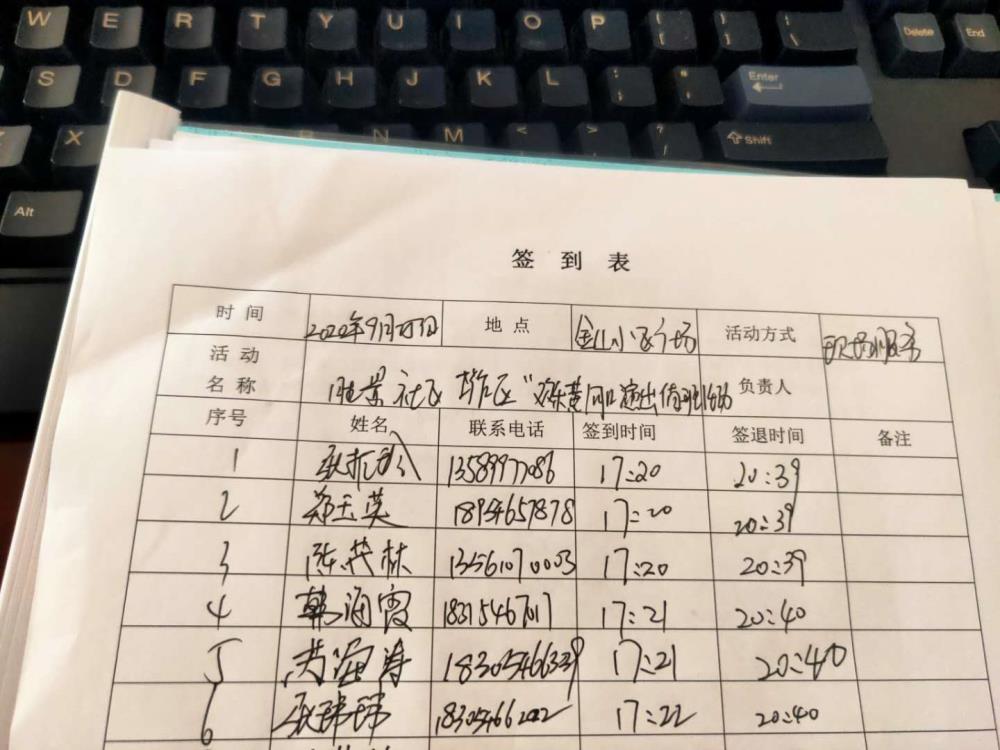 W E R T Y U I O P { [ } ] | \ Delete End
S D F G H J K L : ; " Enter
X N M < > ? Shift
Alt
签到表
时间 2020年9月 日 地点 金山小区广场 活动方式 服务
活动
名称 胜景社区 演出 负责人
序号 姓名 联系电话 签到时间 签退时间 备注
1 13589977086 17:20 20:39
2 郑玉英 18954657878 17:20 20:39
3 陈共林 13561070003 17:20 20:39
4 韩海霞 18315467017 17:21 20:40
5 海涛 18305466339 17:21 20:40
6 耿玮玮 18305466202 17:22 20:40